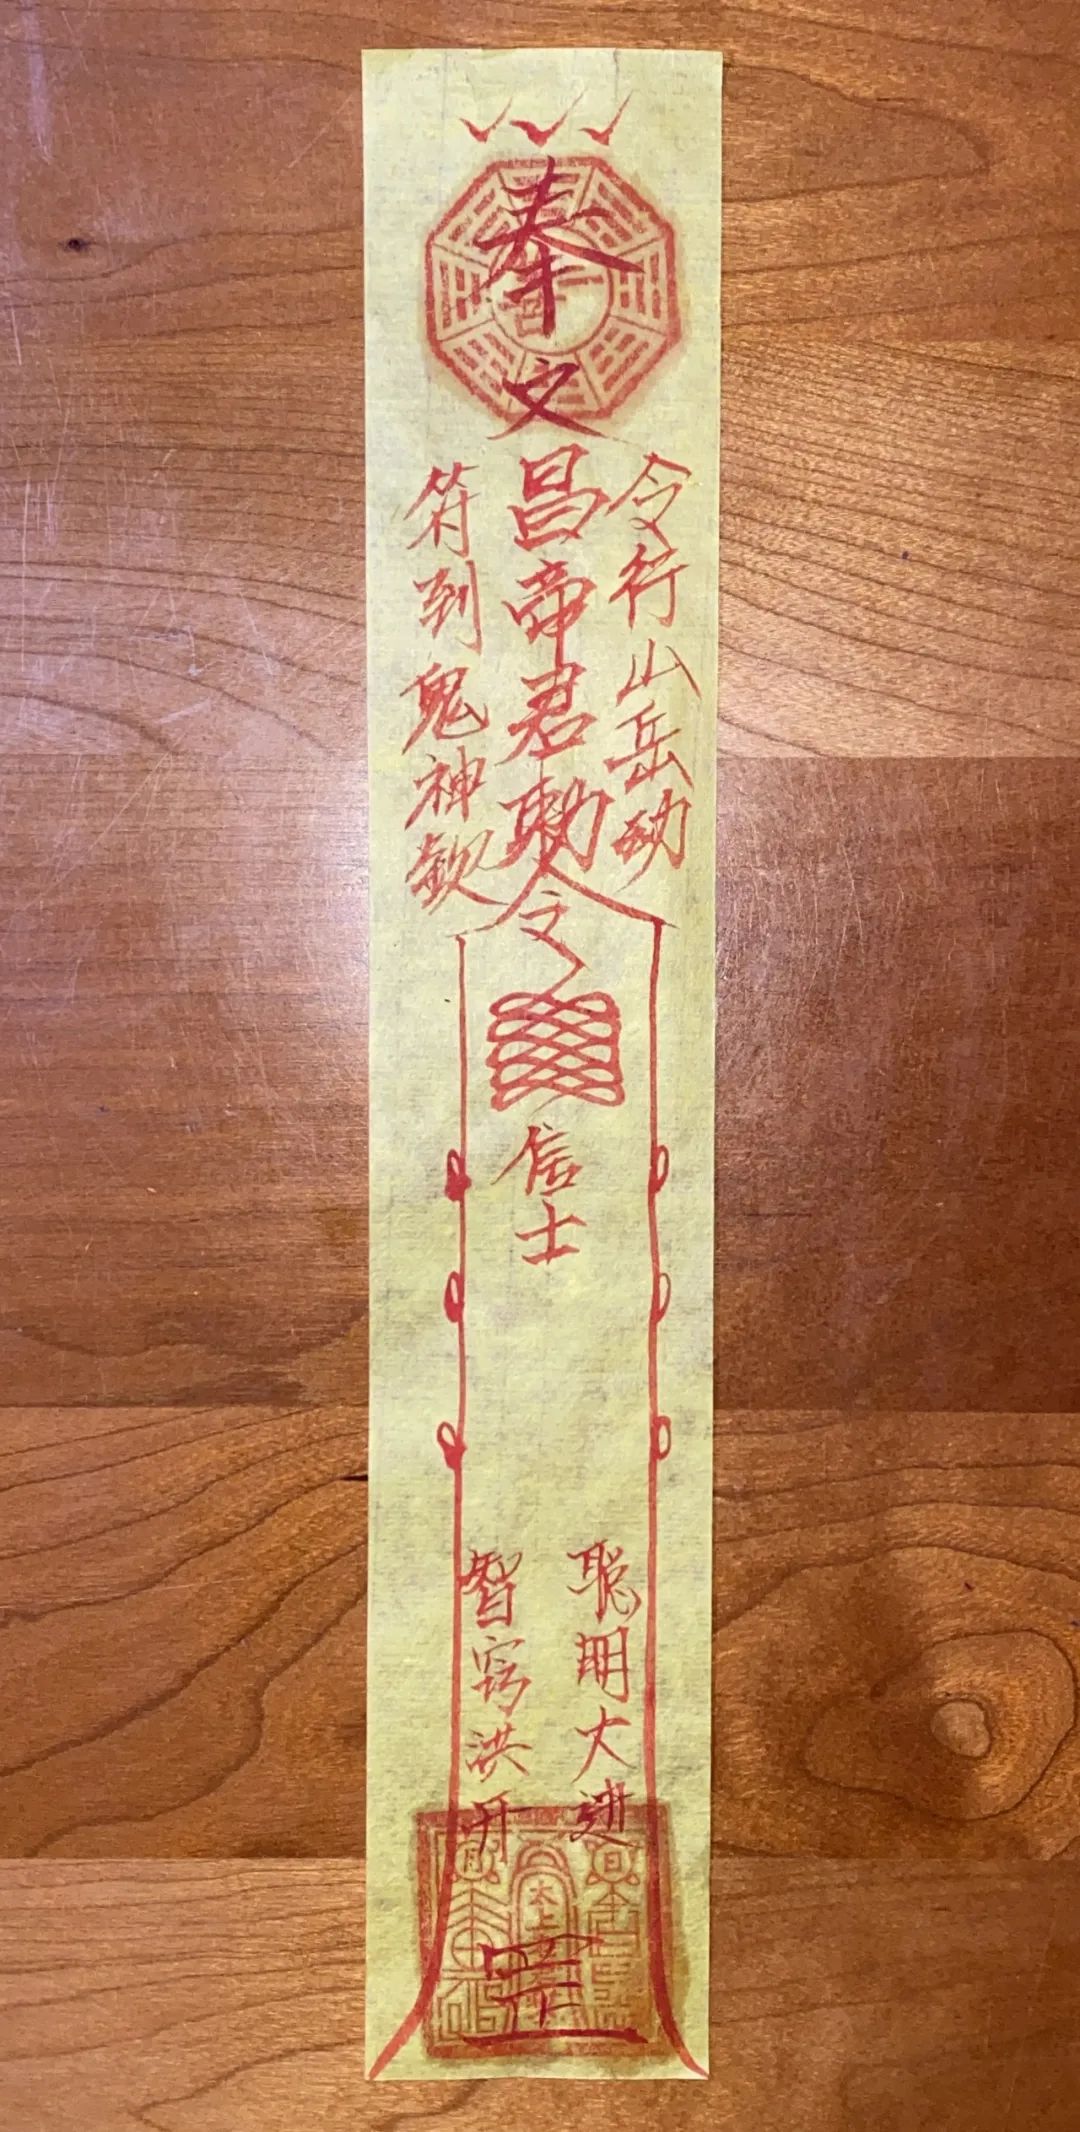 奉文昌帝君勅令
令行山岳动
符到鬼神钦
信士
聪明大进
智窍洪开
日
月
太上